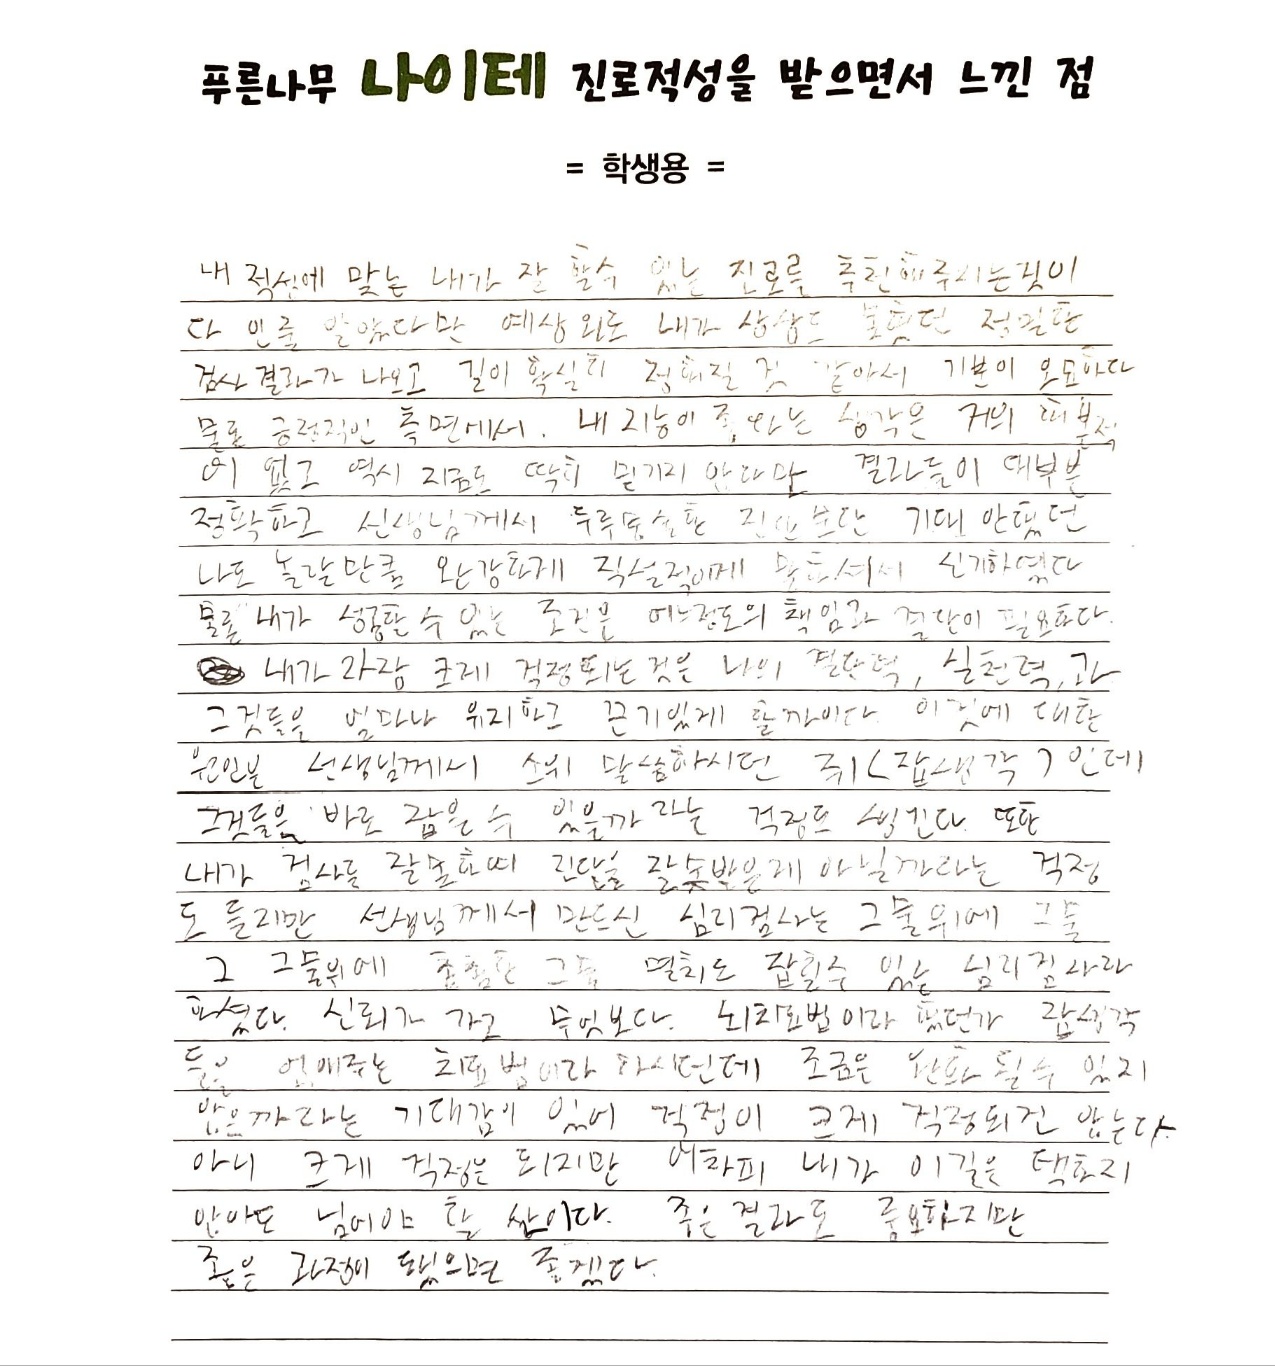 푸른나무 나이테 진로적성을 받으면서 느낀 점
= 학생용 =
내 적성에 맞는 내가 잘 할수 있는 진로를 추천해주시는것이
다 인줄 알았다만 예상외로 내가 상상도 못했던 정밀한
검사결과가 나오고 길이 확실히 정해질 것 같아서 기분이 오묘하다
물론 긍정적인 측면에서. 내 지능이 좋다는 생각은 거의 해본적
이 없고 역시 지금도 딱히 믿기지 않다만 결과들이 대부분
정확하고 선생님께서 두루뭉실한 진단보단 기대 안했던
나도 놀랄만큼 완강하게 직설적이게 말하셔서 신기하였다
물론 내가 성공할 수 있는 조건은 어느정도의 책임과 결단이 필요하다.
내가 가장 크게 걱정되는것은 나의 결단력, 실천력,과
그것들을 얼마나 유지하고 끈기있게 할까이다. 이것에 대한
원인은 선생님께서 소위 말씀하시던 쥐(잡생각)인데
그것들을 바로 잡을 수 있을까 라는 걱정도 생긴다. 또한
내가 검사를 잘못하여 진단을 잘못받은게 아닐까라는 걱정
도 들지만 선생님께서 만드신 심리검사는 그물위에 그물
그 그물위에 촘촘한 그물 멸치도 잡힐수 있는 심리검사라
하셨다. 신뢰가 가고 무엇보다. 뇌치료법이라 했던가 잡생각
들을 없애주는 치료법이라 하시던데 조금은 완화될수 있지
않을까라는 기대감이 있어 걱정이 크게 걱정되진 않는다.
아니 크게 걱정은 되지만 어차피 내가 이길을 택하지
않아도 넘어야 할 산이다. 좋은결과도 중요하지만
좋은 과정이 됐으면 좋겠다.